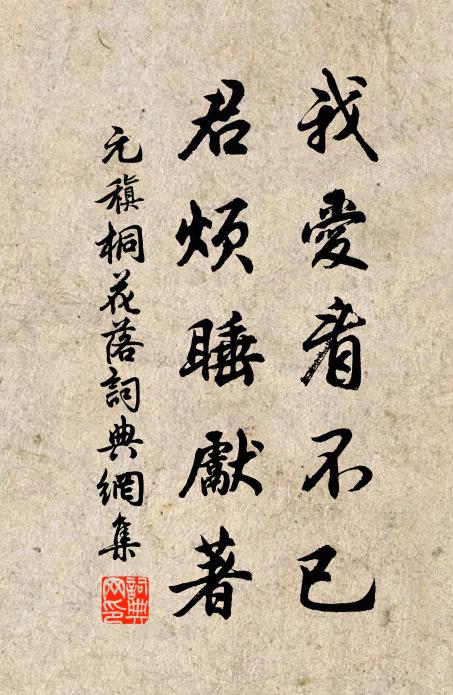 我愛看不已
君煩睡獻著
元稹桐花落詞典網集
詞典
网印